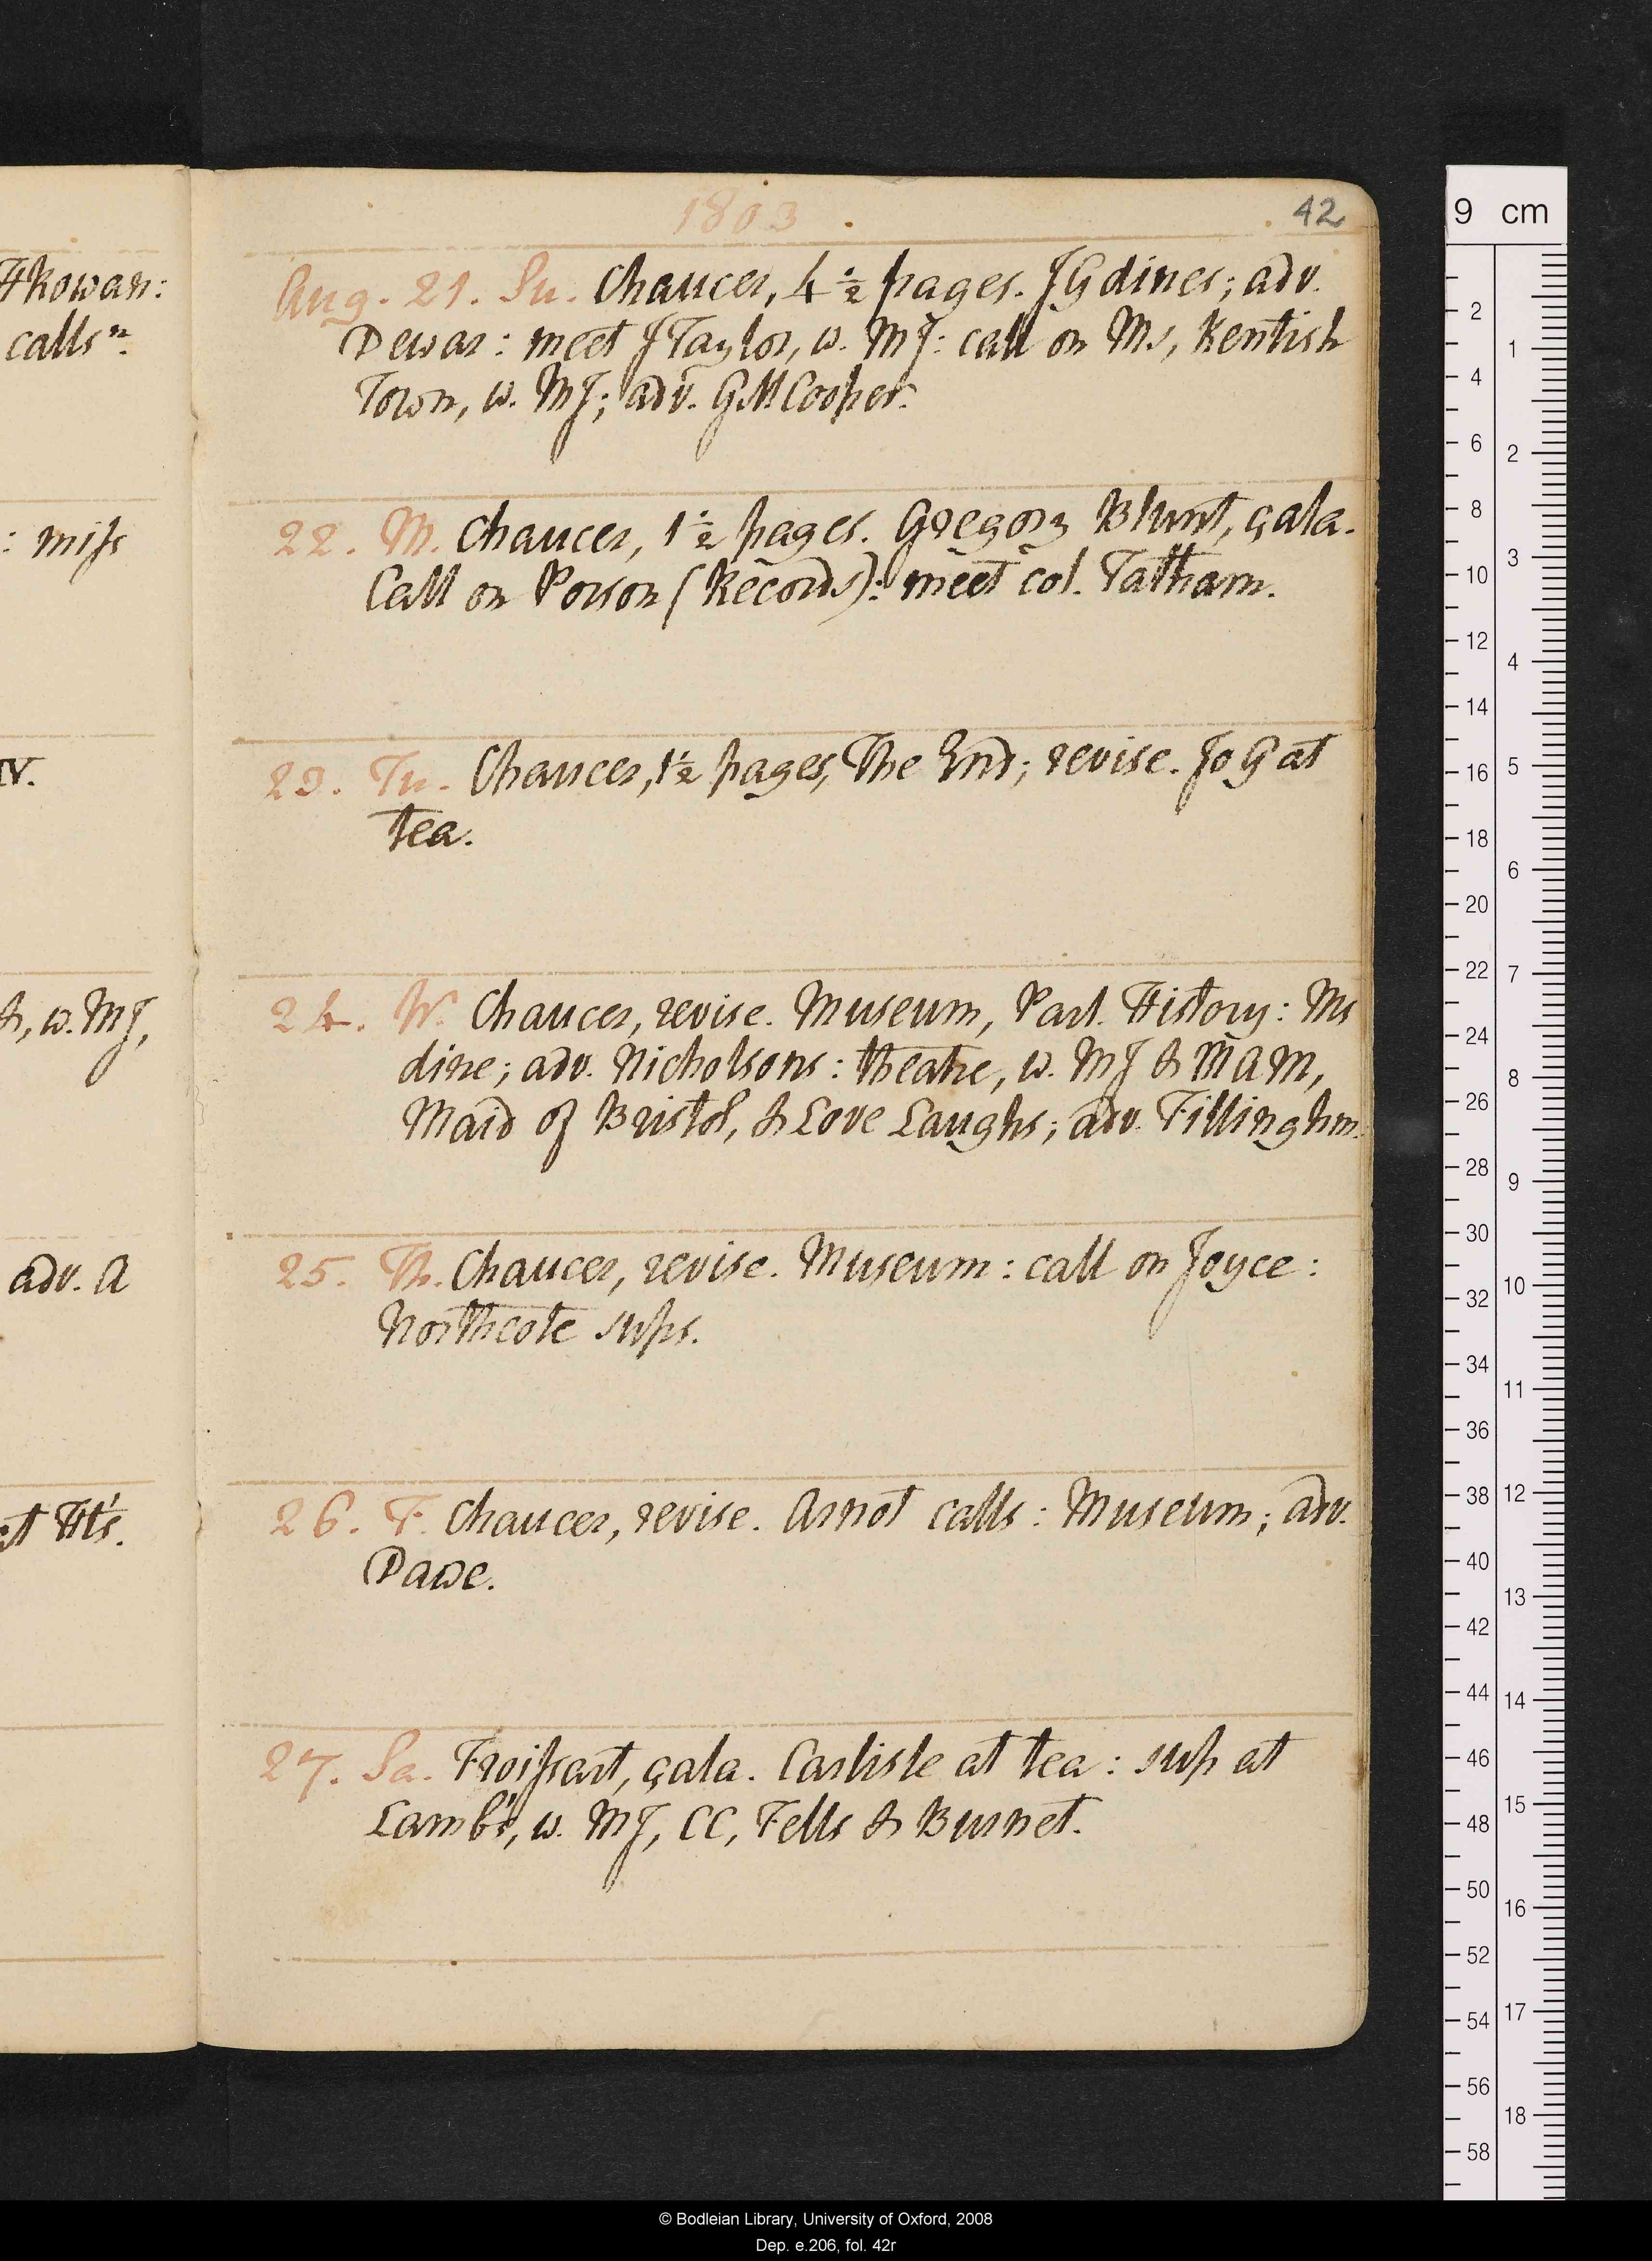 1803
42
Aug. 21. Su. Chaucer, 4 ½ pages. JG dines; adv.
Dewar: meet JTaylor, w. MJ: call on Ms, Kentish
Town, w. MJ; adv. GMCooper.
22. M. Chaucer, 1 ½ pages. Gregory Blunt, çala.
Call on Porson (Records): meet col. Tatham.
23. Tu. Chaucer, 1 ½ pages, The End; revise. Jo G at
tea.
24. W. Chaucer, revise. Museum, Parl. History: Ms
dine; adv. Nicholsons: theatre, w. MJ & MAM,
Maid of Bristol, & Love Laughs; adv. Fillinghm.
25. Th. Chaucer, revise. Museum: call on Joyce:
Northcote sups.
26. F. Chaucer, revise. Arnot calls: Museum; adv.
Dawe.
27. Sa. Froissart, çala. Carlisle at tea: sup at
Lamb's, w. MJ, CC, Fells & Burnet.
HRowan:
calls n.
: miss
IV.
&, w. MJ,
adv. A
at Ht's.
9 cm
2
4
6
8
10
12
14
16
18
20
22
24
26
28
30
32
34
36
38
40
42
44
46
48
50
52
54
56
58
1
2
3
4
5
6
7
8
9
10
11
12
13
14
15
16
17
18
© Bodleian Library, University of Oxford, 2008
Dep. e.206, fol. 42r